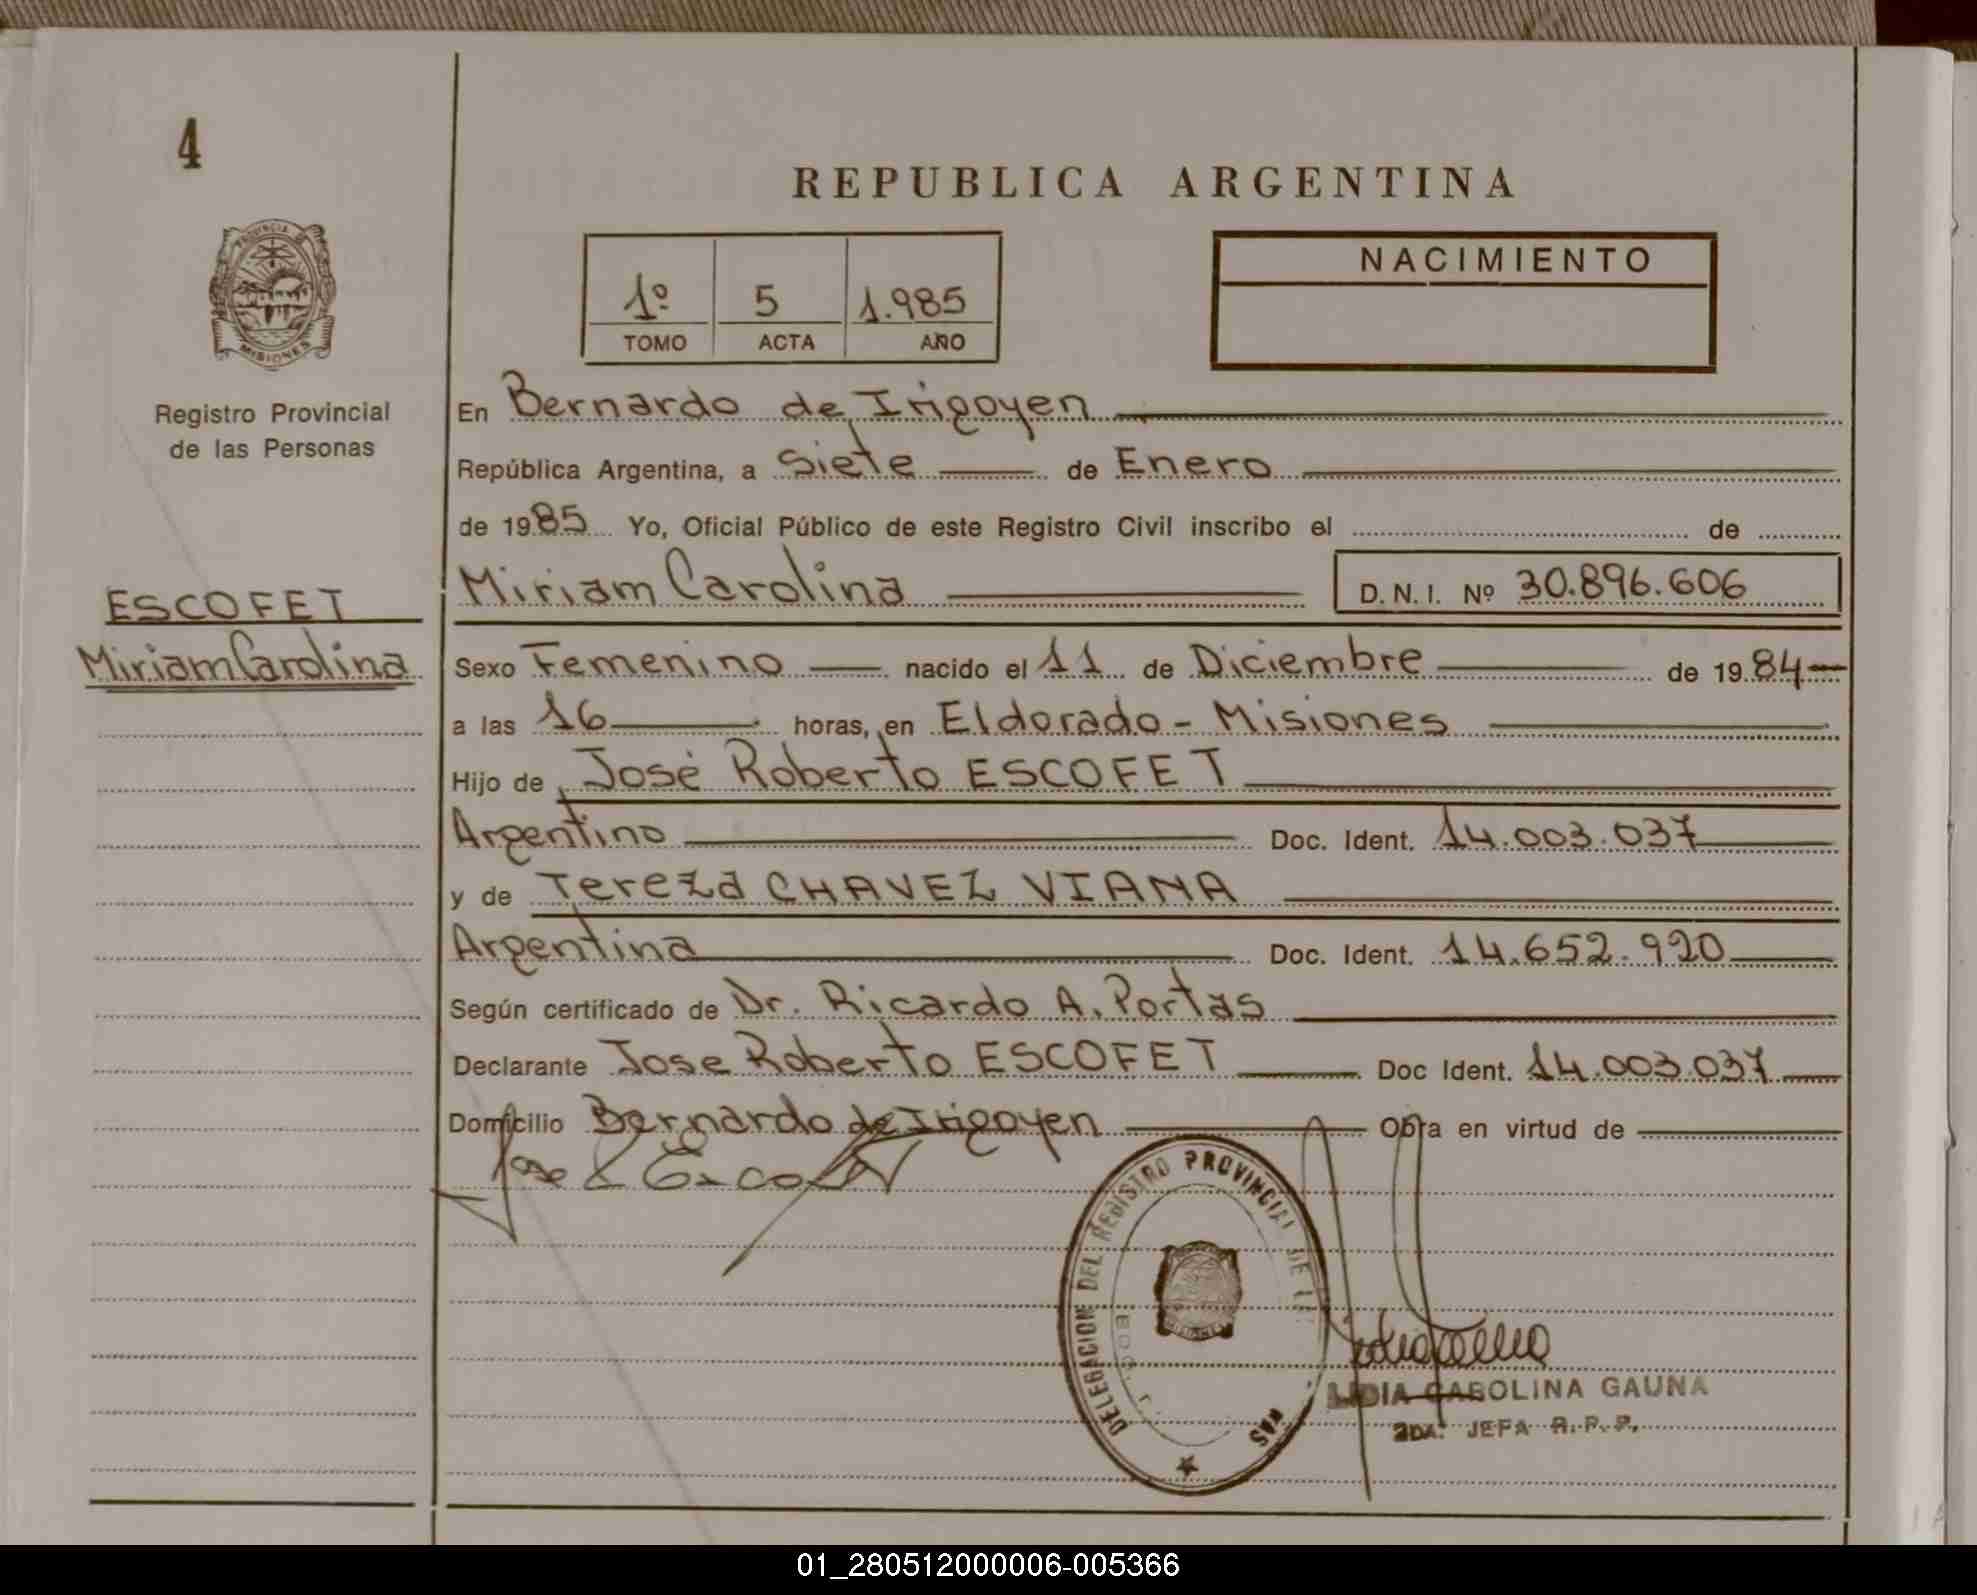 4
REPUBLICA ARGENTINA
PROVINCIA DE
MISIONES
Registro Provincial
de las Personas
1º 5 1.985
TOMO ACTA AÑO
NACIMIENTO
En Bernardo de Irigoyen
República Argentina, a Siete de Enero
de 1985 Yo, Oficial Público de este Registro Civil inscribo el de
ESCOFET
Miriam Carolina
Miriam Carolina D.N.I. Nº 30.896.606
Sexo Femenino nacido el 11 de Diciembre de 1984
a las 16 horas, en Eldorado - Misiones
Hijo de José Roberto ESCOFET
Argentino Doc. Ident. 14.003.037
y de Tereza CHAVEZ VIANA
Argentina Doc. Ident. 14.652.920
Según certificado de Dr. Ricardo A. Portas
Declarante Jose Roberto ESCOFET Doc Ident. 14.003.037
Domicilio Bernardo de Irigoyen Obra en virtud de
DELEGACION DEL REGISTRO PROVINCIAL DE
MISIONES
LIDIA CAROLINA GAUNA
2DA. JEFA R.P.P.
01_280512000006-005366